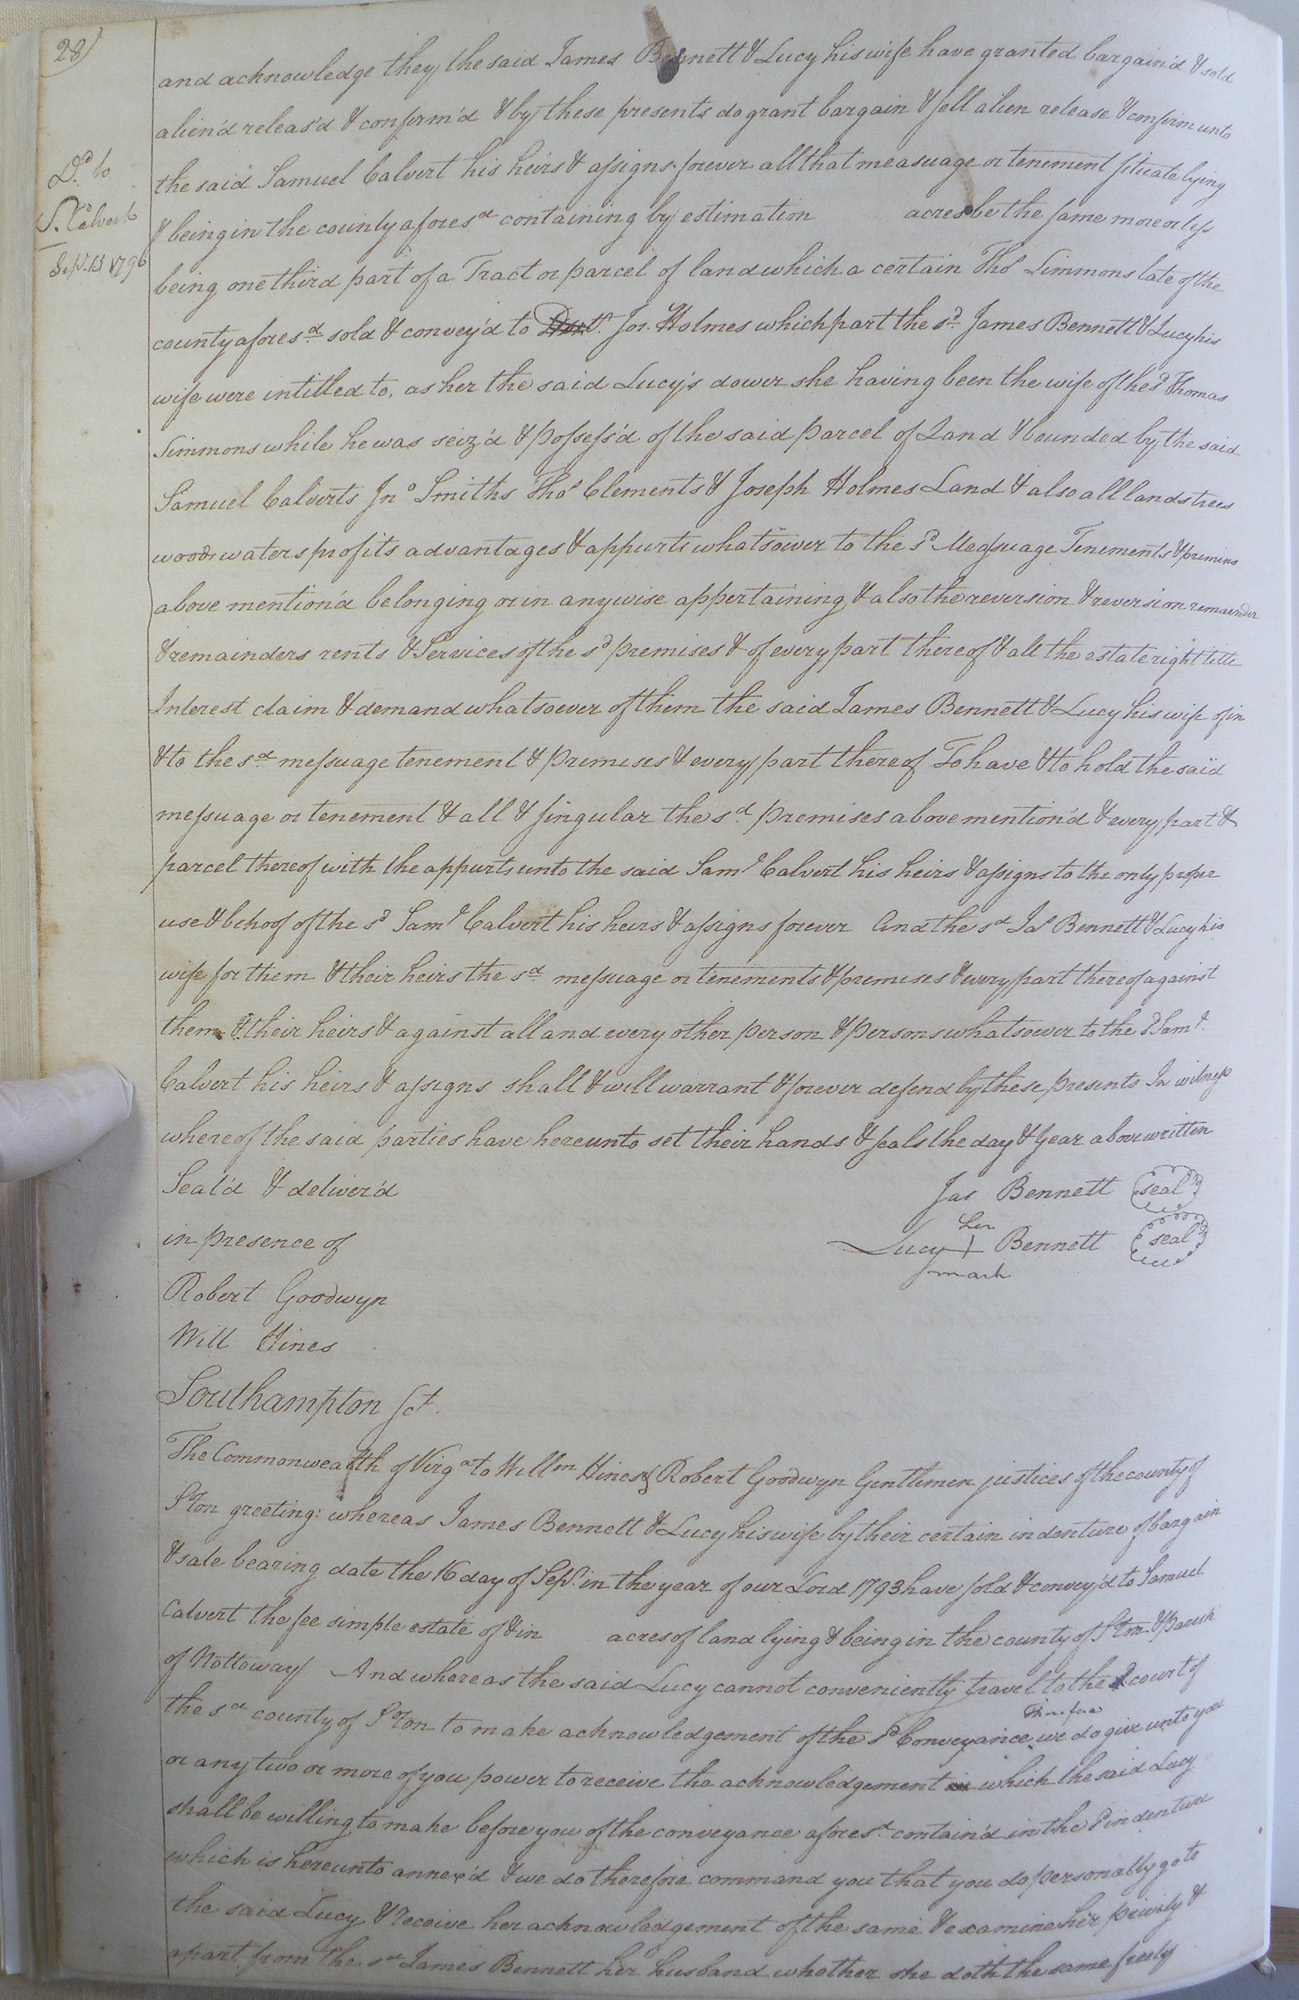 28)
and acknowledge they the said James Bennett & Lucy his wife have granted bargain'd & sold
alien'd releas'd & confirm'd & by these presents do grant bargain & sell alien release & confirm unto
the said Samuel Calvert his heirs & assigns forever all that measuage or tenement situate lying
& being in the county afores.d containing by estimation acres be the same more or less
being one third part of a Tract or parcel of land which a certain Tho.s Simmons late of the
county afores.d sold & convey'd to Jos. Holmes which part the s.d James Bennett & Lucy his
wife were intitled to, as her the said Lucy's dower she having been the wife of the s.d Thomas
Simmons while he was seiz'd & possess'd of the said parcel of Land & bounded by the said
Samuel Calverts Jn.o Smiths Tho.s Clements & Joseph Holmes Land & also all lands trees
woods waters profits advantages & appurts whatsoever to the s.d Messuage Tenements & premises
above mention'd belonging or in anywise appertaining & also the reversion & reversion remainder
& remainders rents & Services of the s.d premises & of every part thereof & all the estate right title
Interest claim & demand whatsoever of them the said James Bennett & Lucy his wife of in
& to the s.d messuage tenement & premises & every part thereof To have & to hold the said
messuage or tenement & all & singular the s.d premises above mention'd & every part &
parcel thereof with the appurts unto the said Sam.l Calvert his heirs & assigns to the only proper
use & behoof of the s.d Sam.l Calvert his heirs & assigns forever And the s.d Ja.s Bennett & Lucy his
wife for them & their heirs the s.d messuage or tenements & premises & every part thereof against
them & their heirs & against all and every other person & persons whatsoever to the s.d Sam.l
Calvert his heirs & assigns shall & will warrant & forever defend by these presents In witness
whereof the said parties have hereunto set their hands & seals the day & year above written
D.d to
S. Calvert
Sep.r 13 1796
Seal'd & deliver'd
in presence of
Robert Goodwyn
Will Hines
Jas Bennett seal
her
Lucy + Bennett seal
mark
Southampton sct.
The Commonwealth of Virg.a to Will.m Hines & Robert Goodwyn Gentlemen justices of the county of
S.ton greeting: whereas James Bennett & Lucy his wife by their certain indenture of bargain
& sale bearing date the 16 day of Sep.r in the year of our Lord 1793 have sold & convey'd to Samuel
Calvert the fee simple estate of & in acres of land lying & being in the county of S.ton & parish
of Nottoway And whereas the said Lucy cannot conveniently travel to the court of
the s.d county of S.ton to make acknowledgement of the s.d Conveyance Therefore we do give unto you
or any two or more of you power to receive the acknowledgement which the said Lucy
shall be willing to make before you of the conveyance afores.d contain'd in the s.d indenture
which is hereunto annex'd & we do therefore command you that you do personally go to
the said Lucy & receive her acknowledgement of the same & examine her privily &
apart from the s.d James Bennett her husband whether she doth the same freely